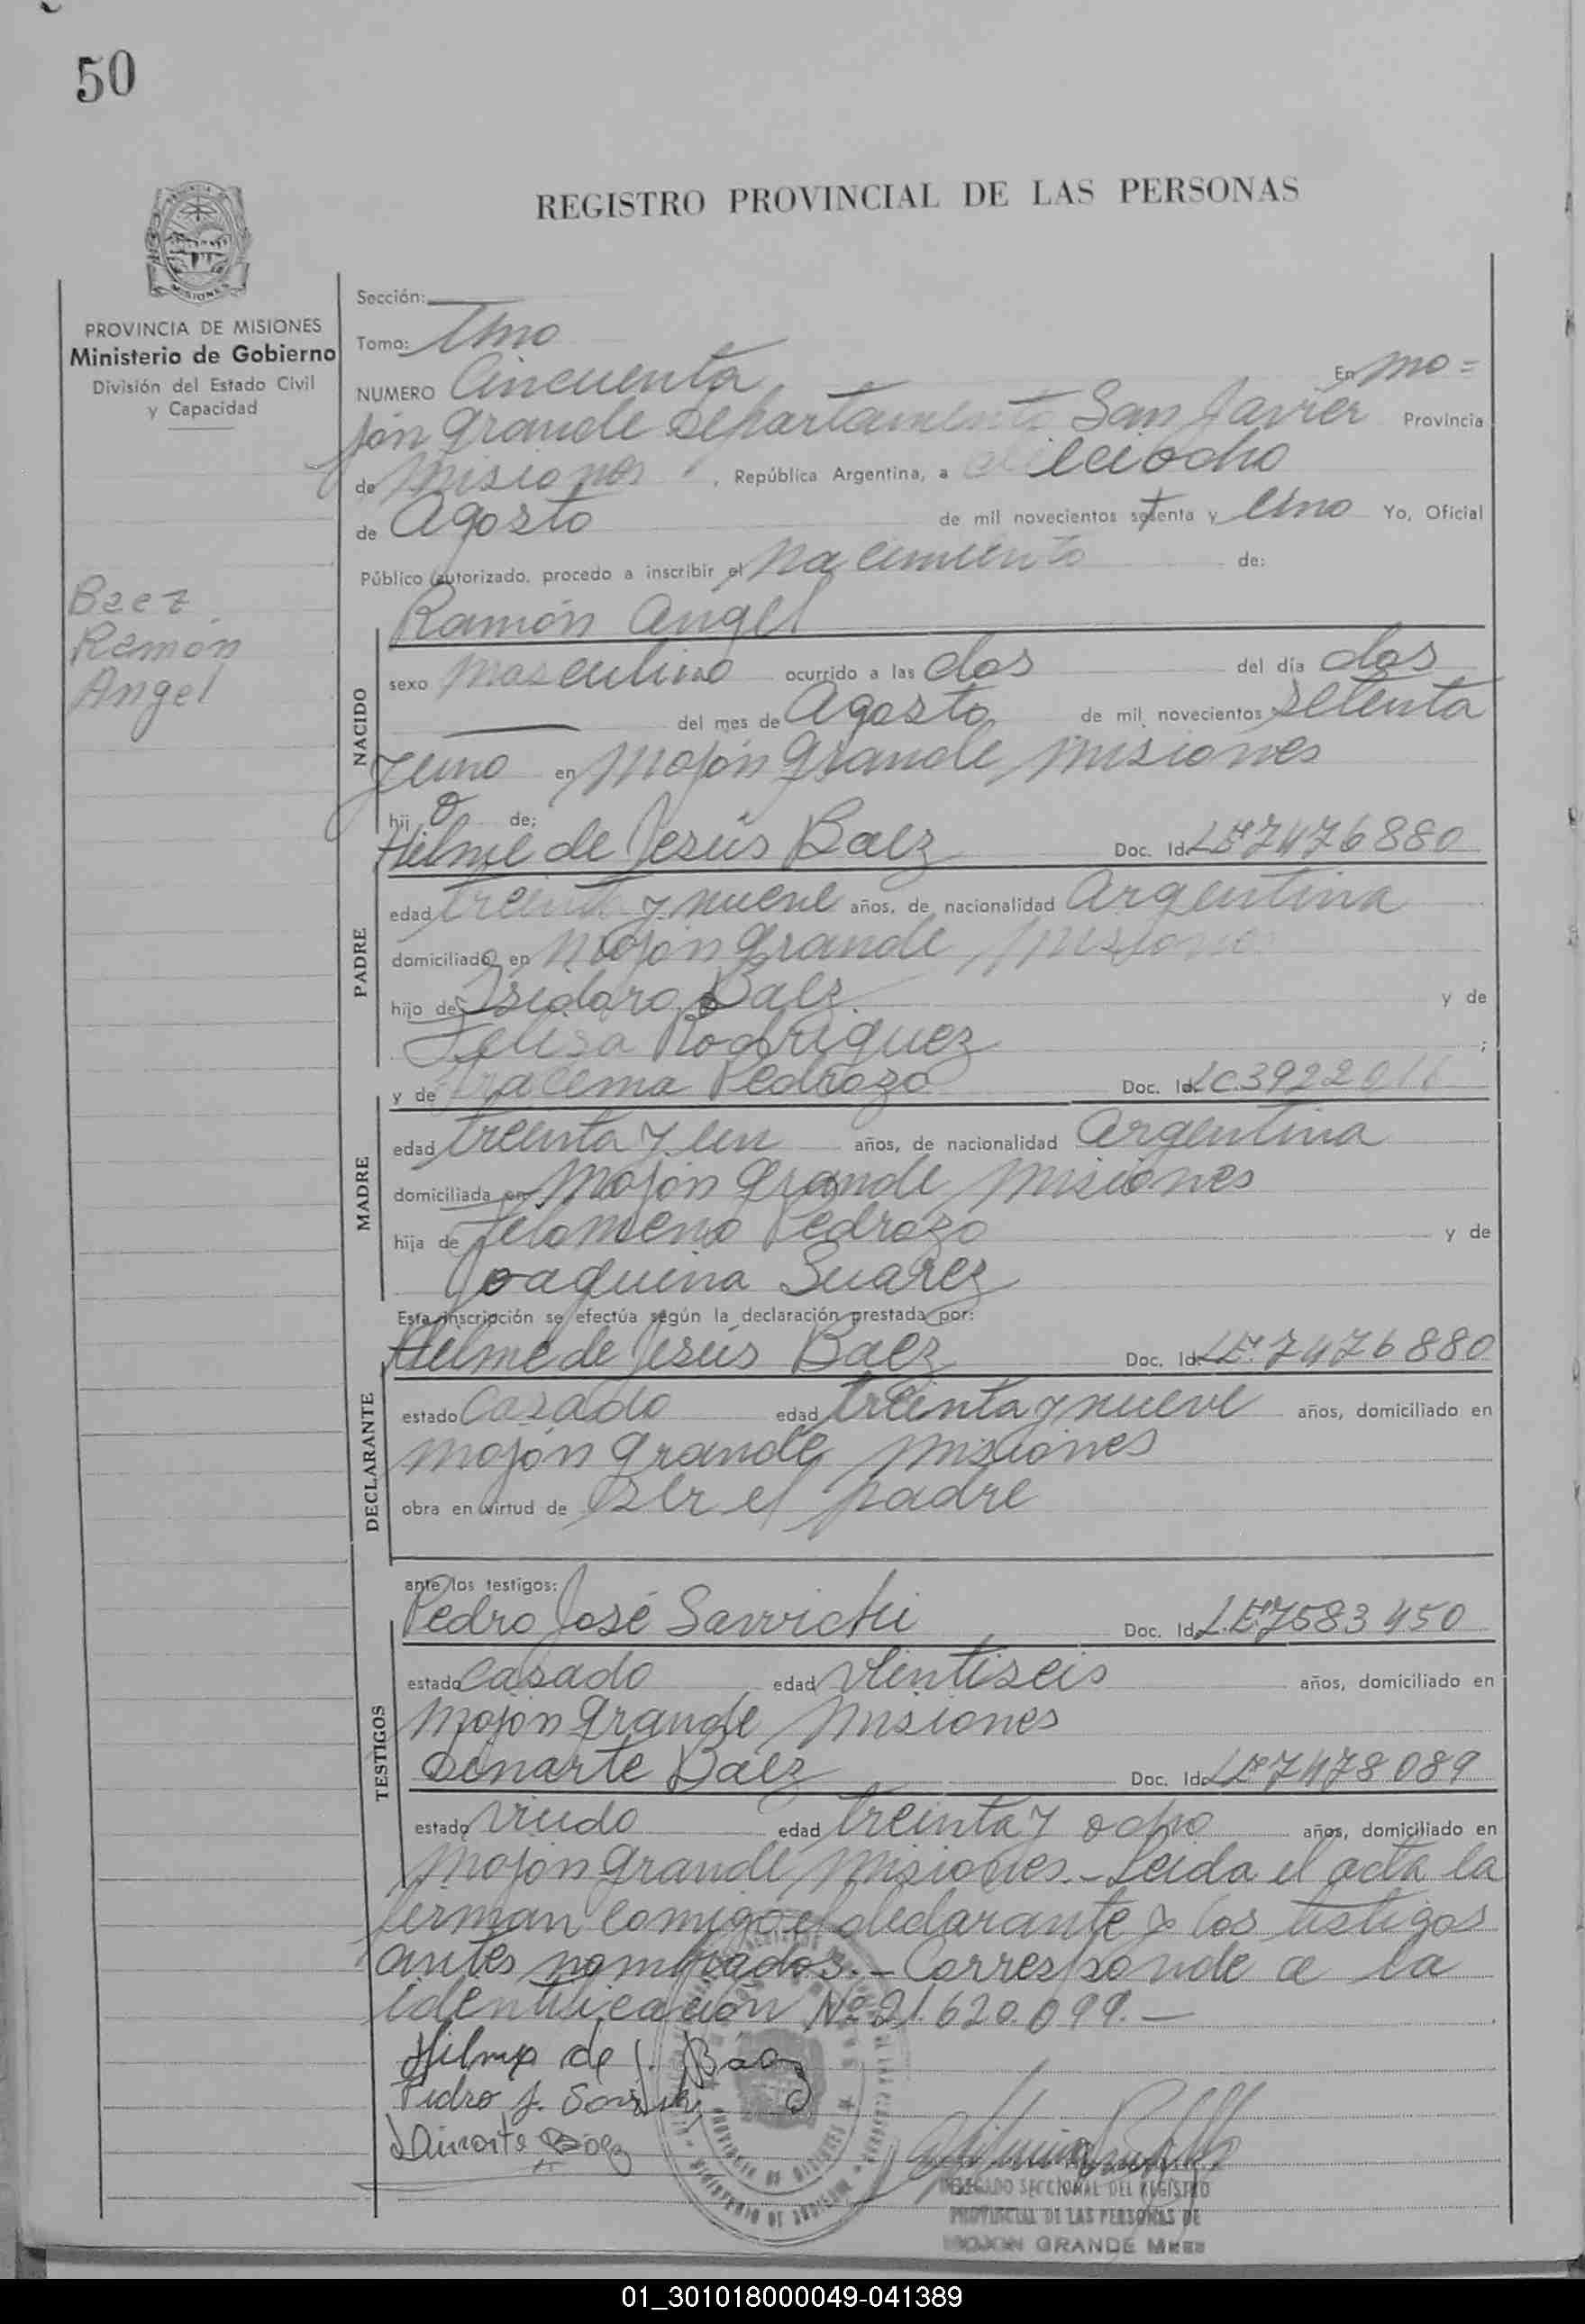 50
REGISTRO PROVINCIAL DE LAS PERSONAS
MISIONES
PROVINCIA DE MISIONES
Ministerio de Gobierno
División del Estado Civil
y Capacidad
Baez
Ramón
Angel
Sección:
Tomo: Uno
NUMERO Cincuenta En Mo=
jón Grande Departamento San Javier Provincia
de Misiones, República Argentina, a dieciocho
de Agosto de mil novecientos setenta y Uno Yo, Oficial
Público autorizado, procedo a inscribir el nacimiento de:
Ramón Angel
NACIDO
sexo masculino ocurrido a las dos del día dos
del mes de Agosto de mil novecientos setenta
y uno en Mojón Grande, Misiones
hij o de:
Hilme de Jesús Baez Doc. Id. LE 7476880
PADRE
edad treinta y nueve años, de nacionalidad Argentina
domiciliado en Mojón Grande, Misiones
hijo de Isidoro Baez y de
Felisa Rodriguez ;
y de Iracema Pedrozo Doc. Id. LC 39220
MADRE
edad treinta y un años, de nacionalidad Argentina
domiciliada en Mojón Grande, Misiones
hija de Filomeno Pedrozo y de
Joaquina Suarez
Esta inscripción se efectúa según la declaración prestada por:
Hilme de Jesús Baez Doc. Id. LE. 7476880
DECLARANTE
estado Casado edad treinta y nueve años, domiciliado en
Mojón Grande, Misiones
obra en virtud de ser el padre
ante los testigos:
Pedro José Doc. Id. L.E. 7583450
TESTIGOS
estado Casado edad veintiseis años, domiciliado en
Mojón Grande, Misiones
Baez Doc. Id. LE 7478089
estado viudo edad treinta y ocho años, domiciliado en
Mojón Grande, Misiones.- Leida el acta la
firman comigo el declarante y los testigos
antes nombrados.- Corresponde a la
identificación Nº 21.620.099.-
Hilme de J. Báez
Pedro J.
Báez
DELEGADO SECCIONAL DEL REGISTRO
PROVINCIAL DE LAS PERSONAS DE
MOJON GRANDE Mnes
01_301018000049-041389